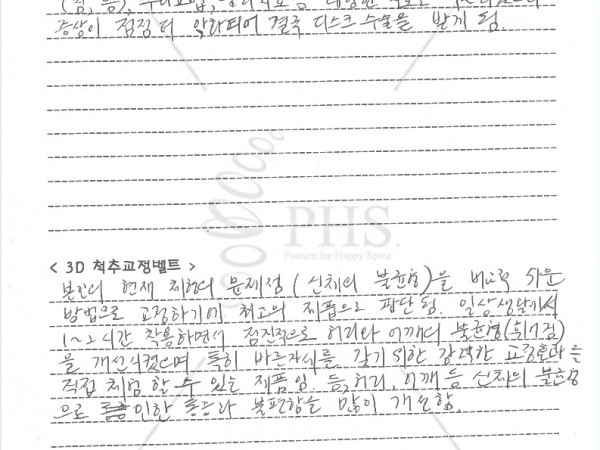 증상이 점점 더 악화되어 결국 디스크 수술을 받게 됨.
PHS.
Posture for Happy Spine
< 3D 척추교정벨트 >
본인의 현재 체형의 문제점 (신체의 불균형)을 비교적 쉬운
방법으로 교정하기에 최고의 제품으로 판단됨. 일상생활에서
1~2시간 착용하면서 점진적으로 허리와 어깨의 불균형(휘어짐)
을 개선시켰으며, 특히 바른자세를 갖기 위한 강력한 교정효과를
직접 체험할 수 있는 제품임. 등, 허리, 어깨 등 신체의 불균형
으로 인한 통증과 불편함을 많이 개선함.